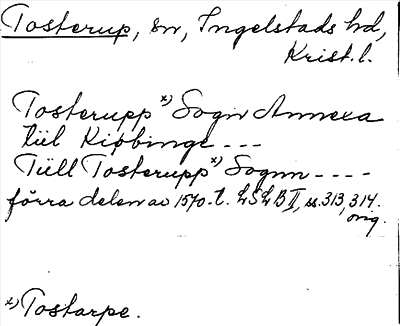 Tosterup, sn, Ingelstads hd,
Krist. l.
Tosterupp x) Sogn Annexa
till Kiöbinge ---
Till Tosterupp x) Sognn ----
förra delen av 1570-t. LSLB II, ss. 313, 314.
orig.
x) Tostarpe.